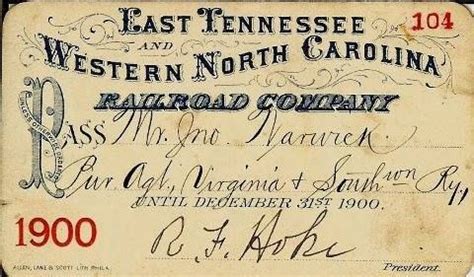 EAST TENNESSEE 104
AND
WESTERN NORTH CAROLINA
RAILROAD COMPANY
UNLESS OTHERWISE ORDERED
PASS Mr. Jno. Warwick
Pur. Agt, Virginia & Southwn Ry,
UNTIL DECEMBER 31ST 1900.
1900 R. F. Hoke
ALLEN, LANE & SCOTT LITH. PHILA. President.